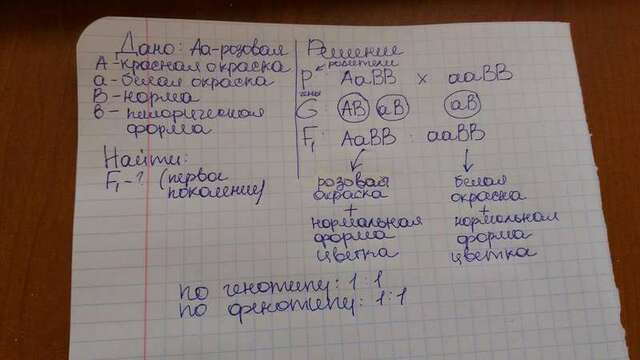 Дано: Аа-розовая
А-красная окраска
а-белая окраска
В-норма
в-пилорическая
форма
Найти:
F₁-? (первое
поколение)
Решение
родители
P АаВВ х ааВВ
G: АВ аВ аВ
F₁: АаВВ : ааВВ
розовая
окраска
+
нормальная
форма
цветка
белая
окраска
+
нормальная
форма
цветка
по генотипу: 1:1
по фенотипу: 1:1